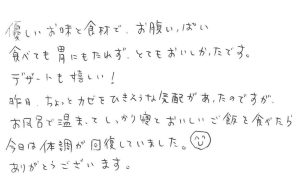 優しいお味と食材で、お腹いっぱい
食べても胃にもたれず、とてもおいしかったです。
デザートも嬉しい！
昨日、ちょっとカゼをひきそうな気配があったのですが、
お風呂で温まってしっかり寝ておいしいご飯を食べたら
今日は体調が回復していました。
ありがとうございます。